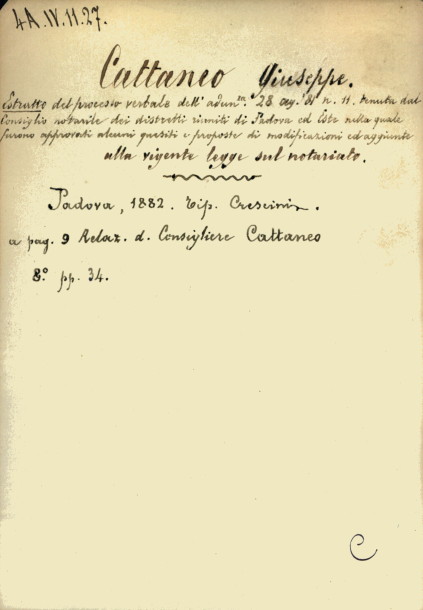 4A.IV.11.27.
Cattaneo Giuseppe.
Estratto del processo verbale dell'adunza. 28 ag. 81 n. 11. tenuta dal
Consiglio notarile dei distretti riuniti di Padova ed Este nella quale
furono approvati alcuni quesiti e proposte di modificazioni ed aggiunte
alla vigente legge sul notariato.
Padova, 1882. Tip. Crescini.
a pag. 9 Relaz. d. Consigliere Cattaneo
8º pp. 34.
C